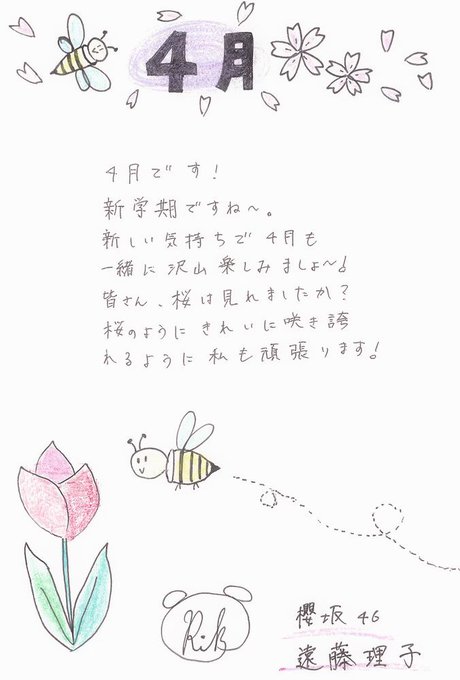 4月
4月です!
新学期ですね〜。
新しい気持ちで4月も
一緒に沢山楽しみましょ〜!
皆さん、桜は見れましたか?
桜のようにきれいに咲き誇
れるように私も頑張ります!
Rik
櫻坂46
遠藤理子